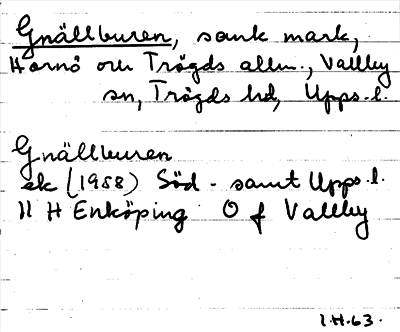 Gnällburen, sank mark,
Hornö och Trögds allm., Vallby
sn, Trögds hd, Upps. l.
Gnällburen
ek (1958) Söd - samt Upps. l.
11 H Enköping O f Vallby
I.H.63.